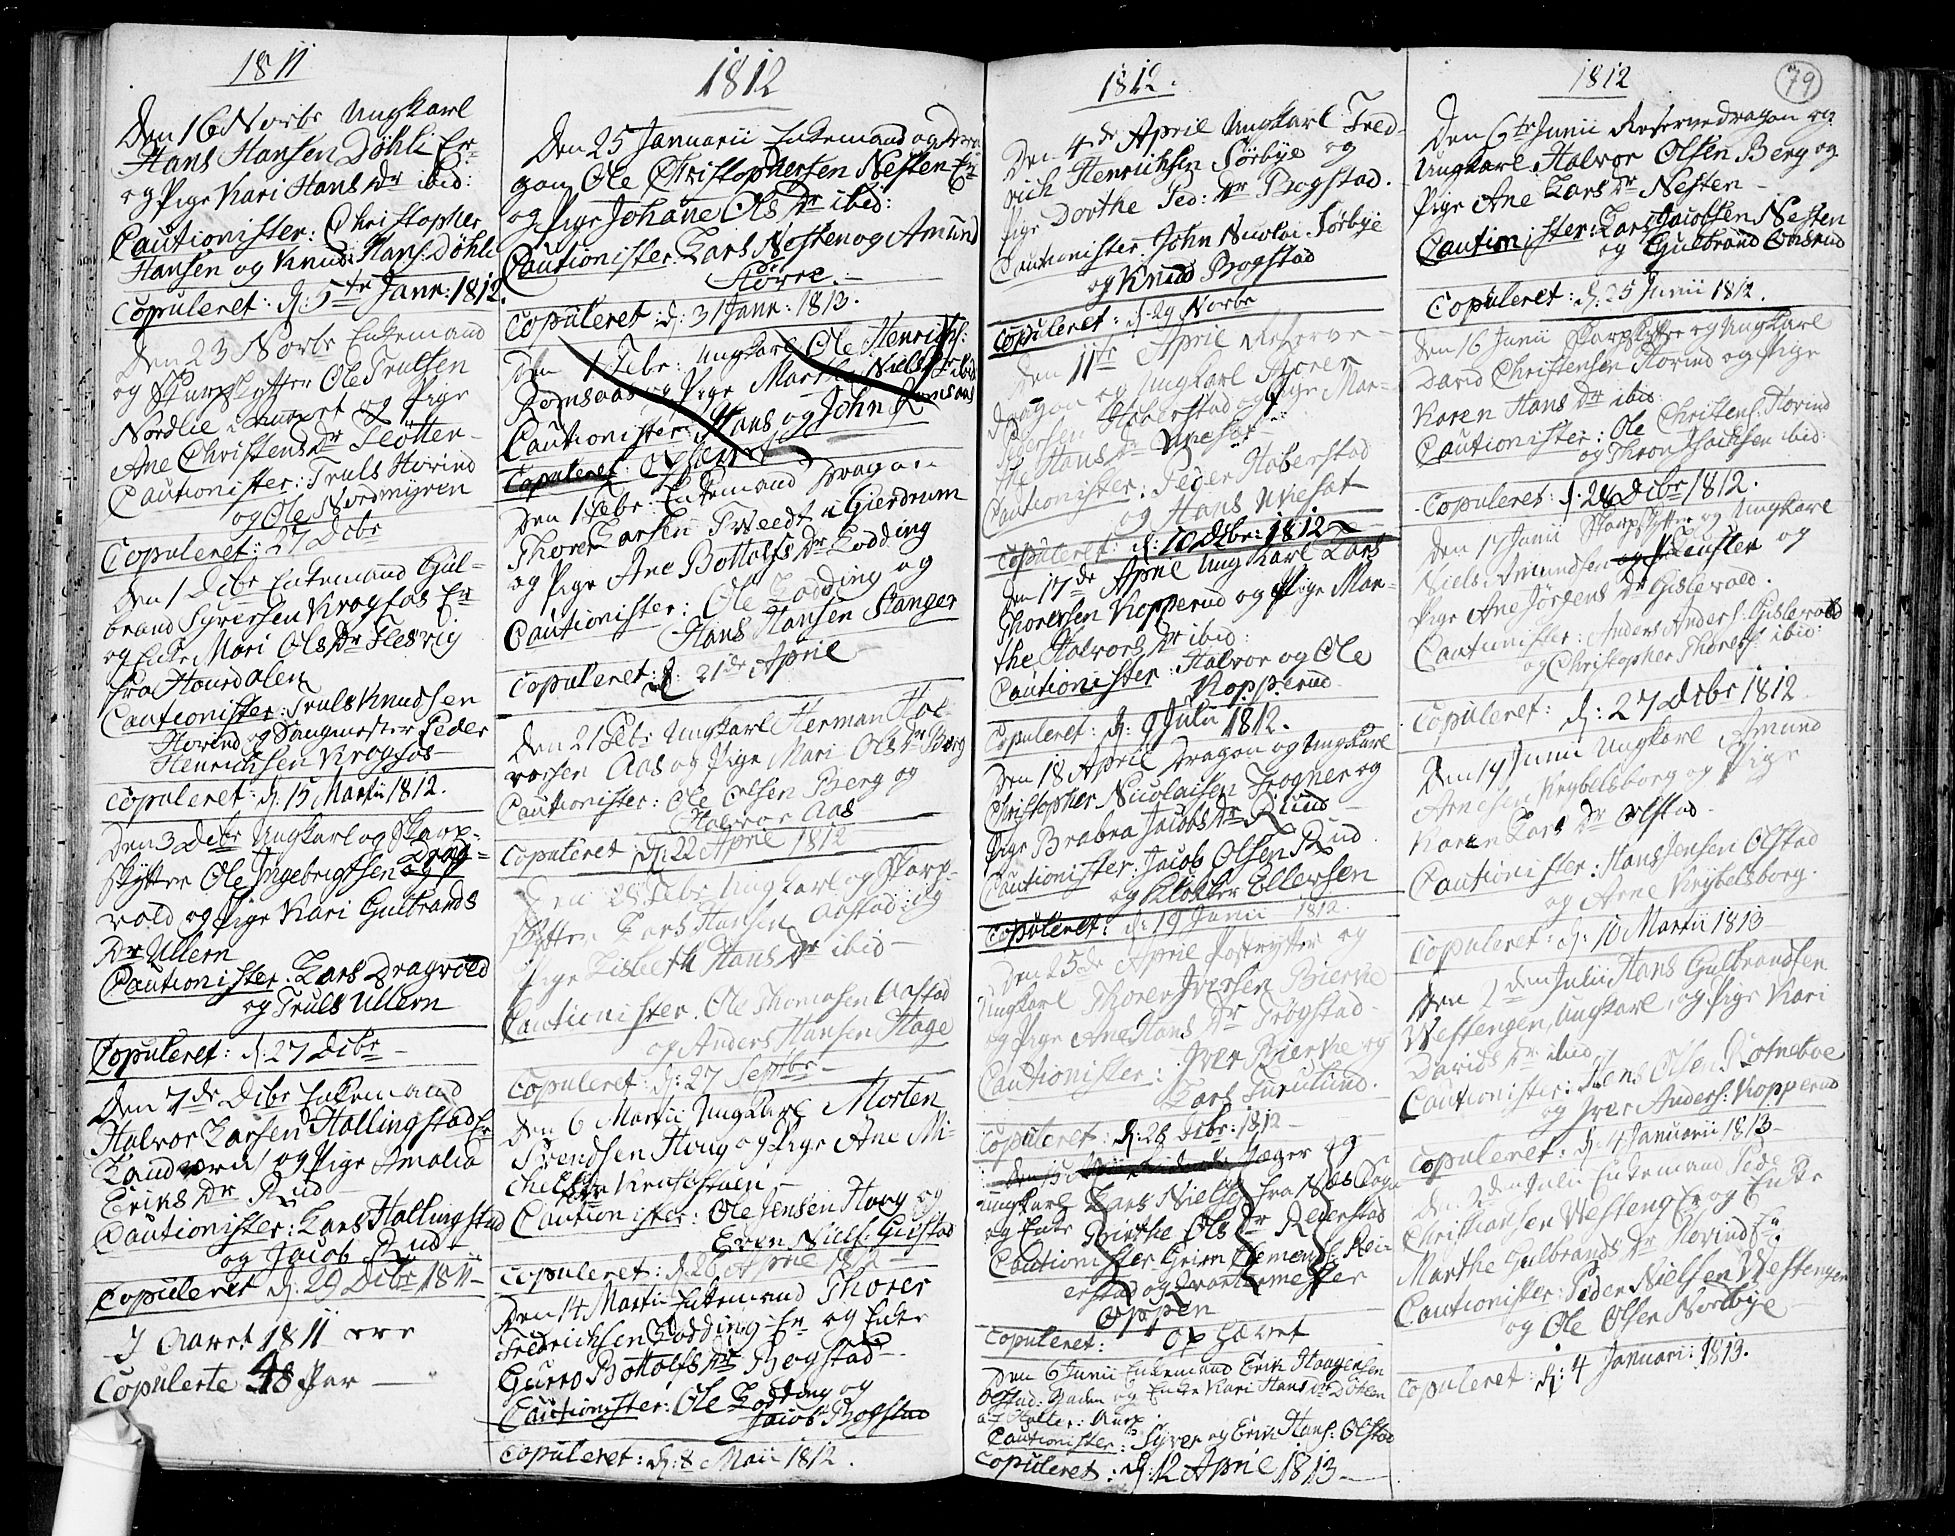 1811
Den 16 Novbr Ungkarl
Hans Hansen Døhli Er
og Pige Kari Hans Dr ibid:
Cautionister: Christopher
Hansen og Knud Hans: Døhli
Copuleret: d: 5te Janr: 1812.
Den 23 Novbr Enkemand
og Skarpskytter Ole Trulsen
Nordlie og Pige
Ane Christens Dr Fløtten
Cautionister: Truls Hovind
og Ole Nordmyren
Copuleret: 27 Decbr
Den 1 Decbr Enkemand Gul-
brand Syversen Krogsos Er
og Enke Mari Ols Dr Flesvig
fra Hourdalen
Cautionister: Truls Knudsen
Hovind og Sangmester Peder
Henrichsen Krogsos
Copuleret: d: 15 Martii 1812.
Den 3 Decbr Ungkarl og Skarp-
skytter Ole Ingebrigtsen Drag-
vold og Pige Kari Gulbrands
Dr Ullern
Cautionister: Lars Dragvold
og Truls Ullern
Copuleret: d: 27 Decbr
Den 7de Decbr Enkemand
Halvor Larsen Hallingstad Er
og Pige Amalia
Eriks Dr Rud
Cautionister: Lars Hallingstad
og Jacob Rud
Copuleret d: 29 Decbr 1811
I Aaret 1811 ere
Copulerte 48 Par
1812
Den 25 Januarii Enkemand og Dra-
gon Ole Christophersen Nesten Er
og Pige Johane Ols Dr ibid:
Cautionister: Lars Nesten og Amund
Hørre
Copuleret: d: 31 Janr: 1813.
Den 1 Febr: Ungkarl Ole Henrichs:
Romsaas og Pige Marthe Niels Dr ibid
Cautionister: Hans og John Romsaas
Copuleret: Ophævet
Den 1 Febr: Enkemand Dragon
Thorer Larsen Tveedt i Gierdrum
og Pige Ane Bottolfs Dr Lodding
Cautionister: Ole Lodding og
Hans Hansen Stanger
Copuleret: d: 21de April
Den 21 Febr Ungkarl Herman Hal-
vorsen Aas og Pige Mari Ols Dr Berg
Cautionister: Ole Olsen Berg og
Halvor Aas
Copuleret: d: 22 April 1812
Den 28 Febr Ungkarl og Skarp-
skytter Lars Hansen Aastad og
Pige Lisbeth Hans Dr ibid
Cautionister: Ole Thomasen Aastad
og Anders Hansen Hage
Copuleret: d: 27 Septbr
Den 6 Martii Ungkarl Morten
Svendsen Houg og Pige Ane Mi-
chels Dr
Cautionister: Ole Jensen Houg og
Even Niels: Gustad
Copuleret: d: 26 April 1812
Den 14 Martii Enkemand Thorer
Fredrichsen Lodding Er og Enke
Gurro Bottolfs Dr Bogstad
Cautionister: Ole Lodding og
Jacob Bogstad
Copuleret: d: 8 Maii 1812.
1812.
Den 4de April Ungkarl Fred-
rich Henrichsen Sørbye og
Pige Dorthe Ped: Dr Bogstad.
Cautionister: John Nicolai Sørbye
og Knud Bogstad
Copuleret: d: 29 Novbr
Den 11te April Reserve
dragon og Ungkarl Thorer
Haberstad og Pige Mar-
the Hans Dr
Cautionister: Peder Haberstad
og Hans
Copuleret: d: 10 Decbr: 1812
Den 17de April Ungkarl Lars
Thoresen Kopperud og Pige Mar-
the Halvors Dr ibid:
Cautionister: Halvor og Ole
Kopperud
Copuleret: d: 9 Julii 1812.
Den 18 April Dragon og Ungkarl
Christopher Nicolaisen Hogner og
Pige Brabra Jacobs Dr Rud
Cautionister: Jacob Olsen Rud
og Klokker Ellersen
Copuleret: d: 19 Junii 1812.
Den 25de April Postrytter og
Ungkarl Thorer Iversen Bierke
og Pige Ane Hans Dr Trøgstad
Cautionister: Iver Bierke og
Lars Furulund.
Copuleret: d: 28 Decbr: 1812
Jæger og
Ungkarl Lars Niels: fra Næs
og Enke Birthe Ols Dr Reierstad
Cautionister Clemends: Rei-
erstad og Qvarteermester
Oppen
Copuleret: Ophævet
Den 6 Junii Enkemand Erik Haagensen
Olstad: Baden og Enke Kari Hans Dr Døhlen
af Holter: Annex
Cautionister: Syver og Erik Hans: Olstad
Copuleret: d: 12 April 1813
1812
79
Den 6te Junii Reservedragon og
Ungkarl Halvor Olsen Berg og
Pige Ane Lars Dr Nesten
Cautionister: Lars Jacobsen Nesten
og Gulbrand
Copuleret: d: 25 Junii 1812.
Den 16 Junii Skarpskytter og Ungkarl
David Christensen Hovind og Pige
Karen Hans Dr ibid:
Cautionister: Ole Christens: Hovind
og Thron Isachsen ibid:
Copuleret: d: 28 Decbr 1812.
Den 17 Junii Skarpskytter og Ungkarl
Niels Amundsen og
Pige Ane Jørgens Dr Gislevold.
Cautionister: Anders Anders: Gislevold
og Christopher Thores: ibid:
Copuleret: d: 27 Decbr 1812
Den 19 Junii Ungkarl Amund
Arnesen Krybelsborg og Pige
Karen Lars Dr Olstad
Cautionister: Hans Jensen Olstad
og Arne Krybelsborg.
Copuleret: d: 10 Martii 1813
Den 2den Julii Hans Gulbrandsen
Westengen, Ungkarl, og Pige Kari
Davids Dr ibid
Cautionister: Jens Olsen Rotneboe
og Iver Anders: Kopperud
Copuleret: d: 4 Januarii 1813
Den 2den Julii Enkemand Peder
Christiansen Westeng Er og Enke
Marthe Gulbrands Dr Hovind Er.
Cautionister: Peder Nielsen Westengen
og Ole Olsen Nordbye
Copuleret: d: 4 Januari: 1813.